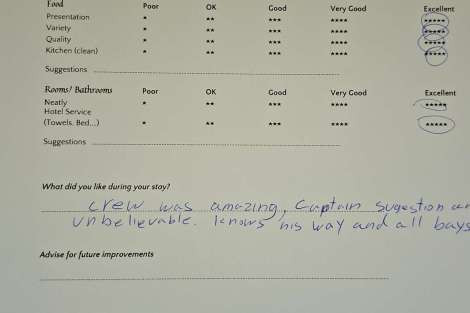 Food Poor OK Good Very Good Excellent
Presentation * ** *** **** *****
Variety * ** *** **** *****
Quality * ** *** **** *****
Kitchen (clean) * ** *** **** *****
Suggestions
Rooms/ Bathrooms Poor OK Good Very Good Excellent
Neatly * ** *** **** *****
Hotel Service
(Towels, Bed...) * ** *** **** *****
Suggestions
What did you like during your stay?
crew was amazing, Captain sugestion
unbelievable. knows his way and all bays
Advise for future improvements